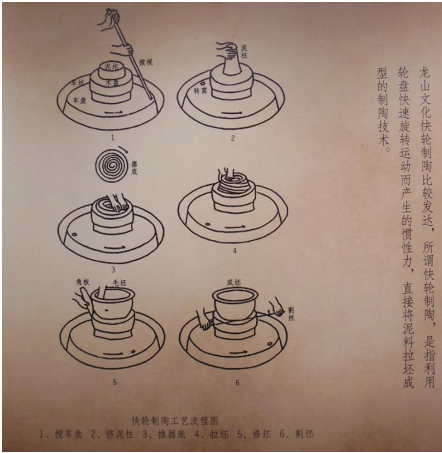 龙山文化快轮制陶比较发达，所谓快轮制陶，是指利用
轮盘快速旋转运动而产生的惯性力，直接将泥料拉坯成
型的制陶技术。
搅棍
车盘
1
泥柱
转窝
2
器底
3
4
角板
毛坯
5
底坯
割坯
6
快轮制陶工艺流程图
1、搅车盘 2、挤泥柱 3、推器底 4、拉坯 5、修坯 6、割坯